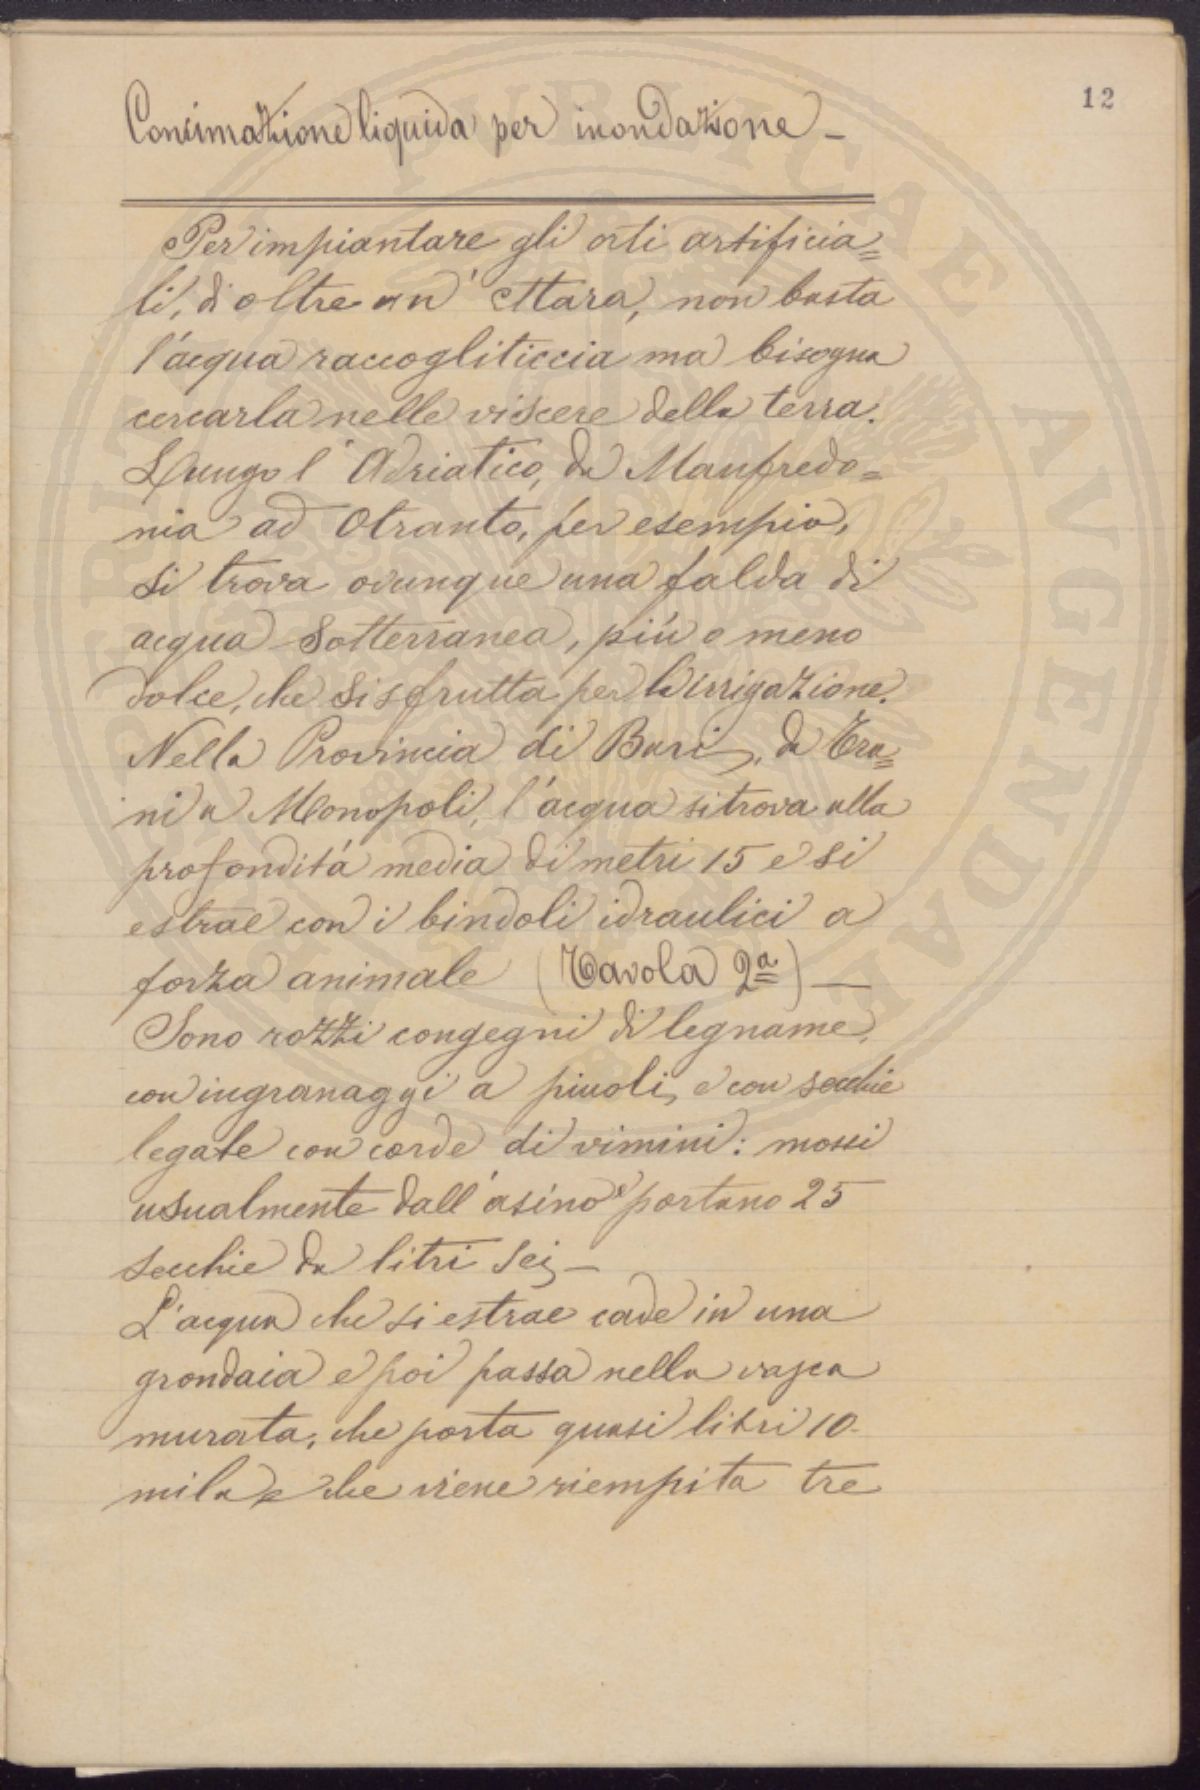 12
Concimazione liquida per inondazione –
Per impiantare gli orti artificia=
li, di oltre un' ettara, non basta
l'acqua raccogliticcia ma bisogna
cercarla nelle viscere della terra.
Lungo l'Adriatico, da Manfredo=
nia ad Otranto, per esempio,
si trova ovunque una falda di
acqua sotterranea, più o meno
dolce, che si sfrutta per la irrigazione.
Nella Provincia di Bari, da Tra=
ni a Monopoli, l'acqua si trova alla
profondità media di metri 15 e si
estrae con i bindoli idraulici a
forza animale (Tavola 2ª) —
Sono rozzi congegni di legname,
con ingranaggi a piuoli, e con secchie
legate con corde di vimini: mossi
usualmente dall'asino e portano 25
secchie da litri sei, –
L'acqua che si estrae cade in una
grondaia e poi passa nella vasca
murata, che porta quasi litri 10.
mila e che viene riempita tre
PVBLICAE AVGENDAE